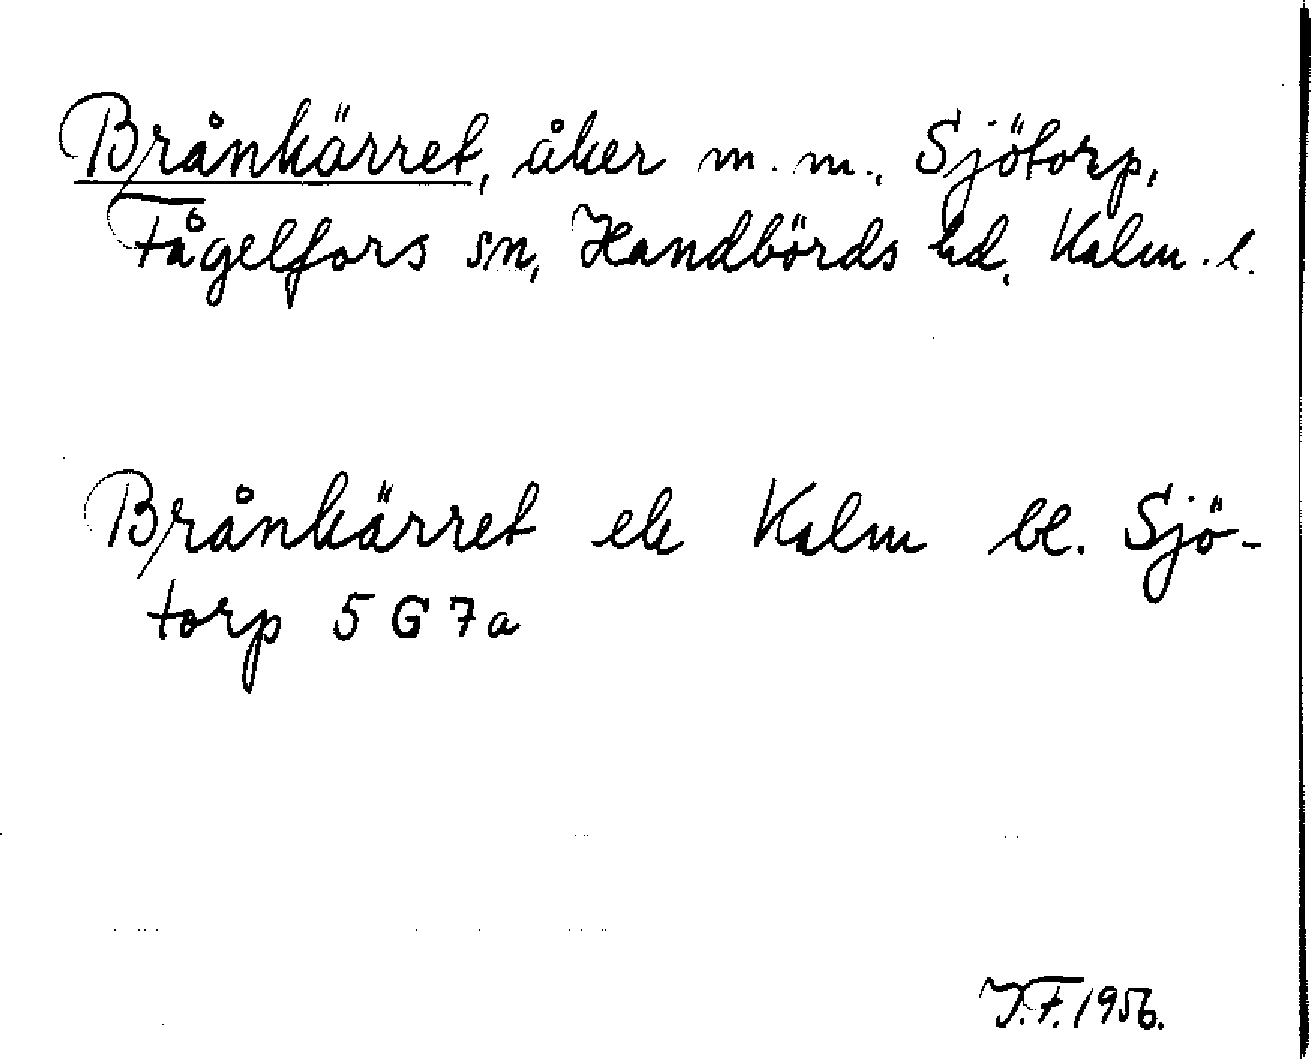 Brånkärret, åker m.m., Sjötorp,
Fågelfors sn, Handbörds hd, Kalm. l.
Brånkärret ek Kalm bl. Sjö-
torp 5 G 7a
J.F. 1956.